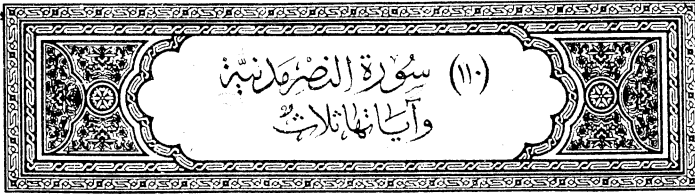 (١١٠) سُورَة النَّصْر مَدَنِيَّة
وَآيَاتُهَا ثَلَاثٌ